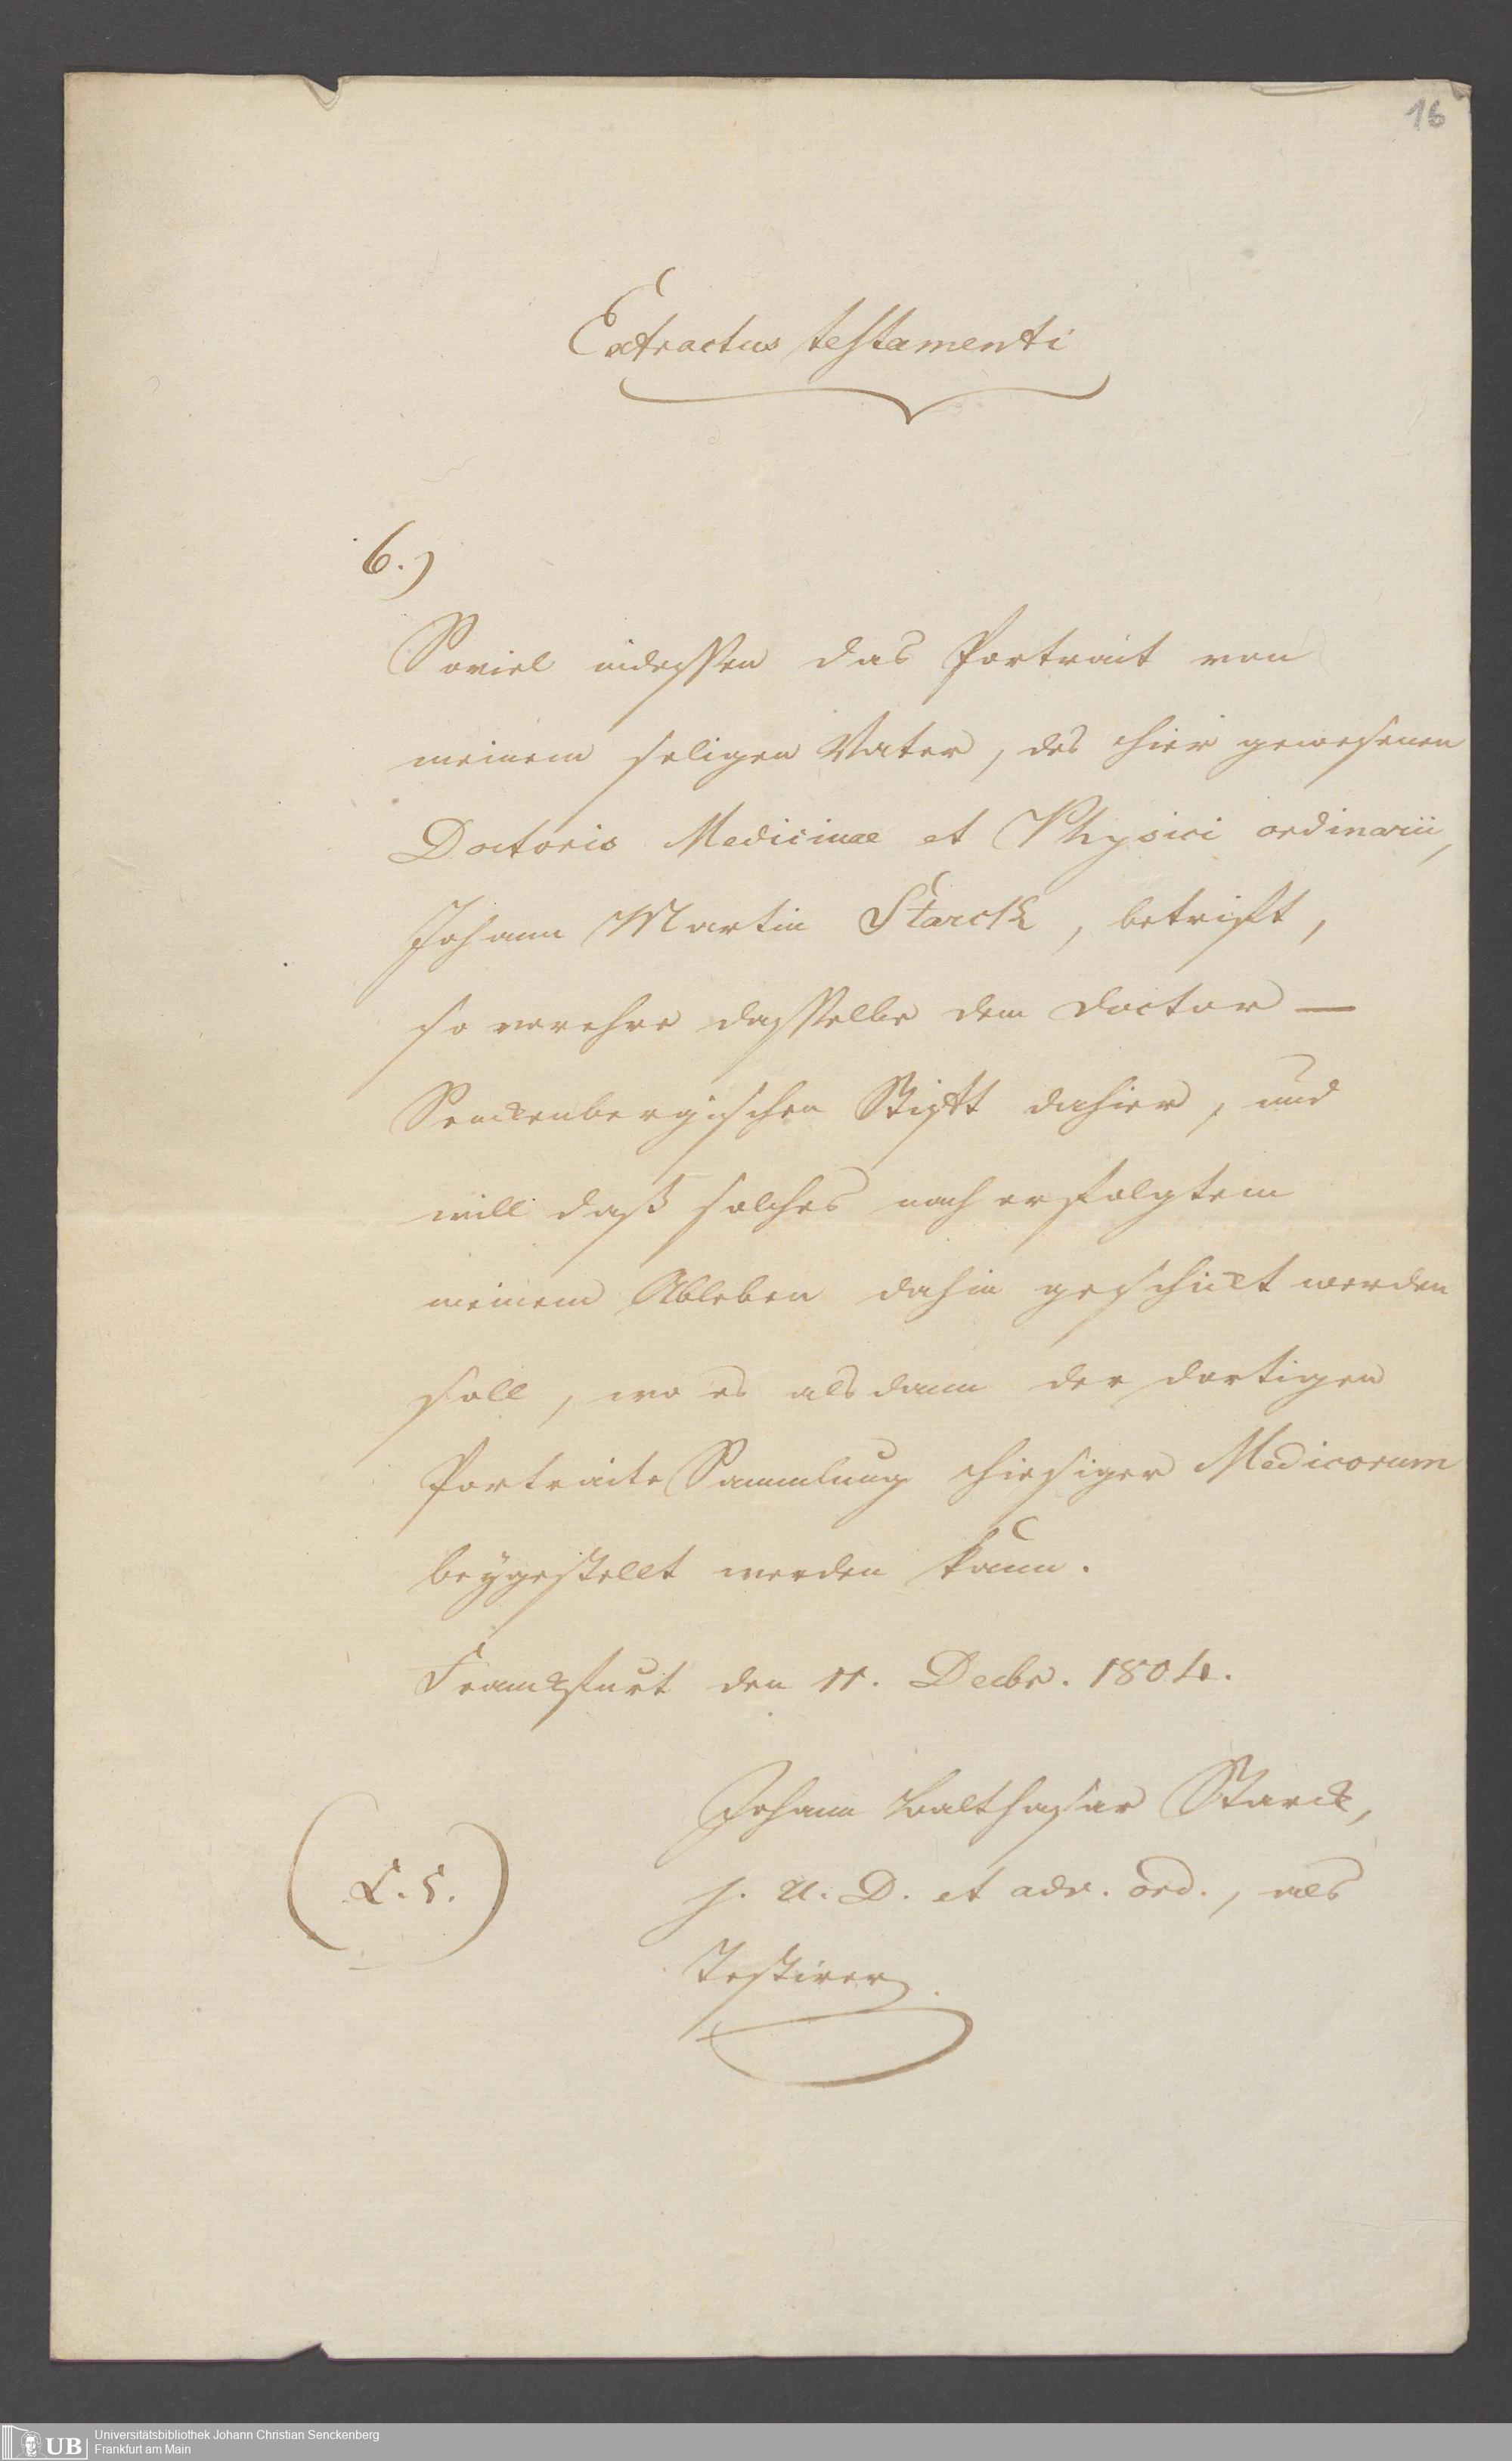 16
Extractus testamenti
6.)
Soviel indessen das Portrait von
meinem seligen Vater, des hier gewesenen
Doctoris Medicinae et Physici ordinarii,
Johann Martin Starck, betrift,
so verehre dasselbe dem Doctor —
Senckenbergischen Stift dahier, und
will daß solches nach erfolgtem
meinem Ableben dahin geschickt werden
soll, wo es alsdann der dortigen
Portraite Sammlung hiesiger Medicorum
beygestellt werden kann.
Franckfurt den 11. Decbr. 1804.
Johann Balthasar Starck,
(L. S.) J. U. D. et adv. ord., als
Testirer.
UB Universitätsbibliothek Johann Christian Senckenberg
Frankfurt am Main